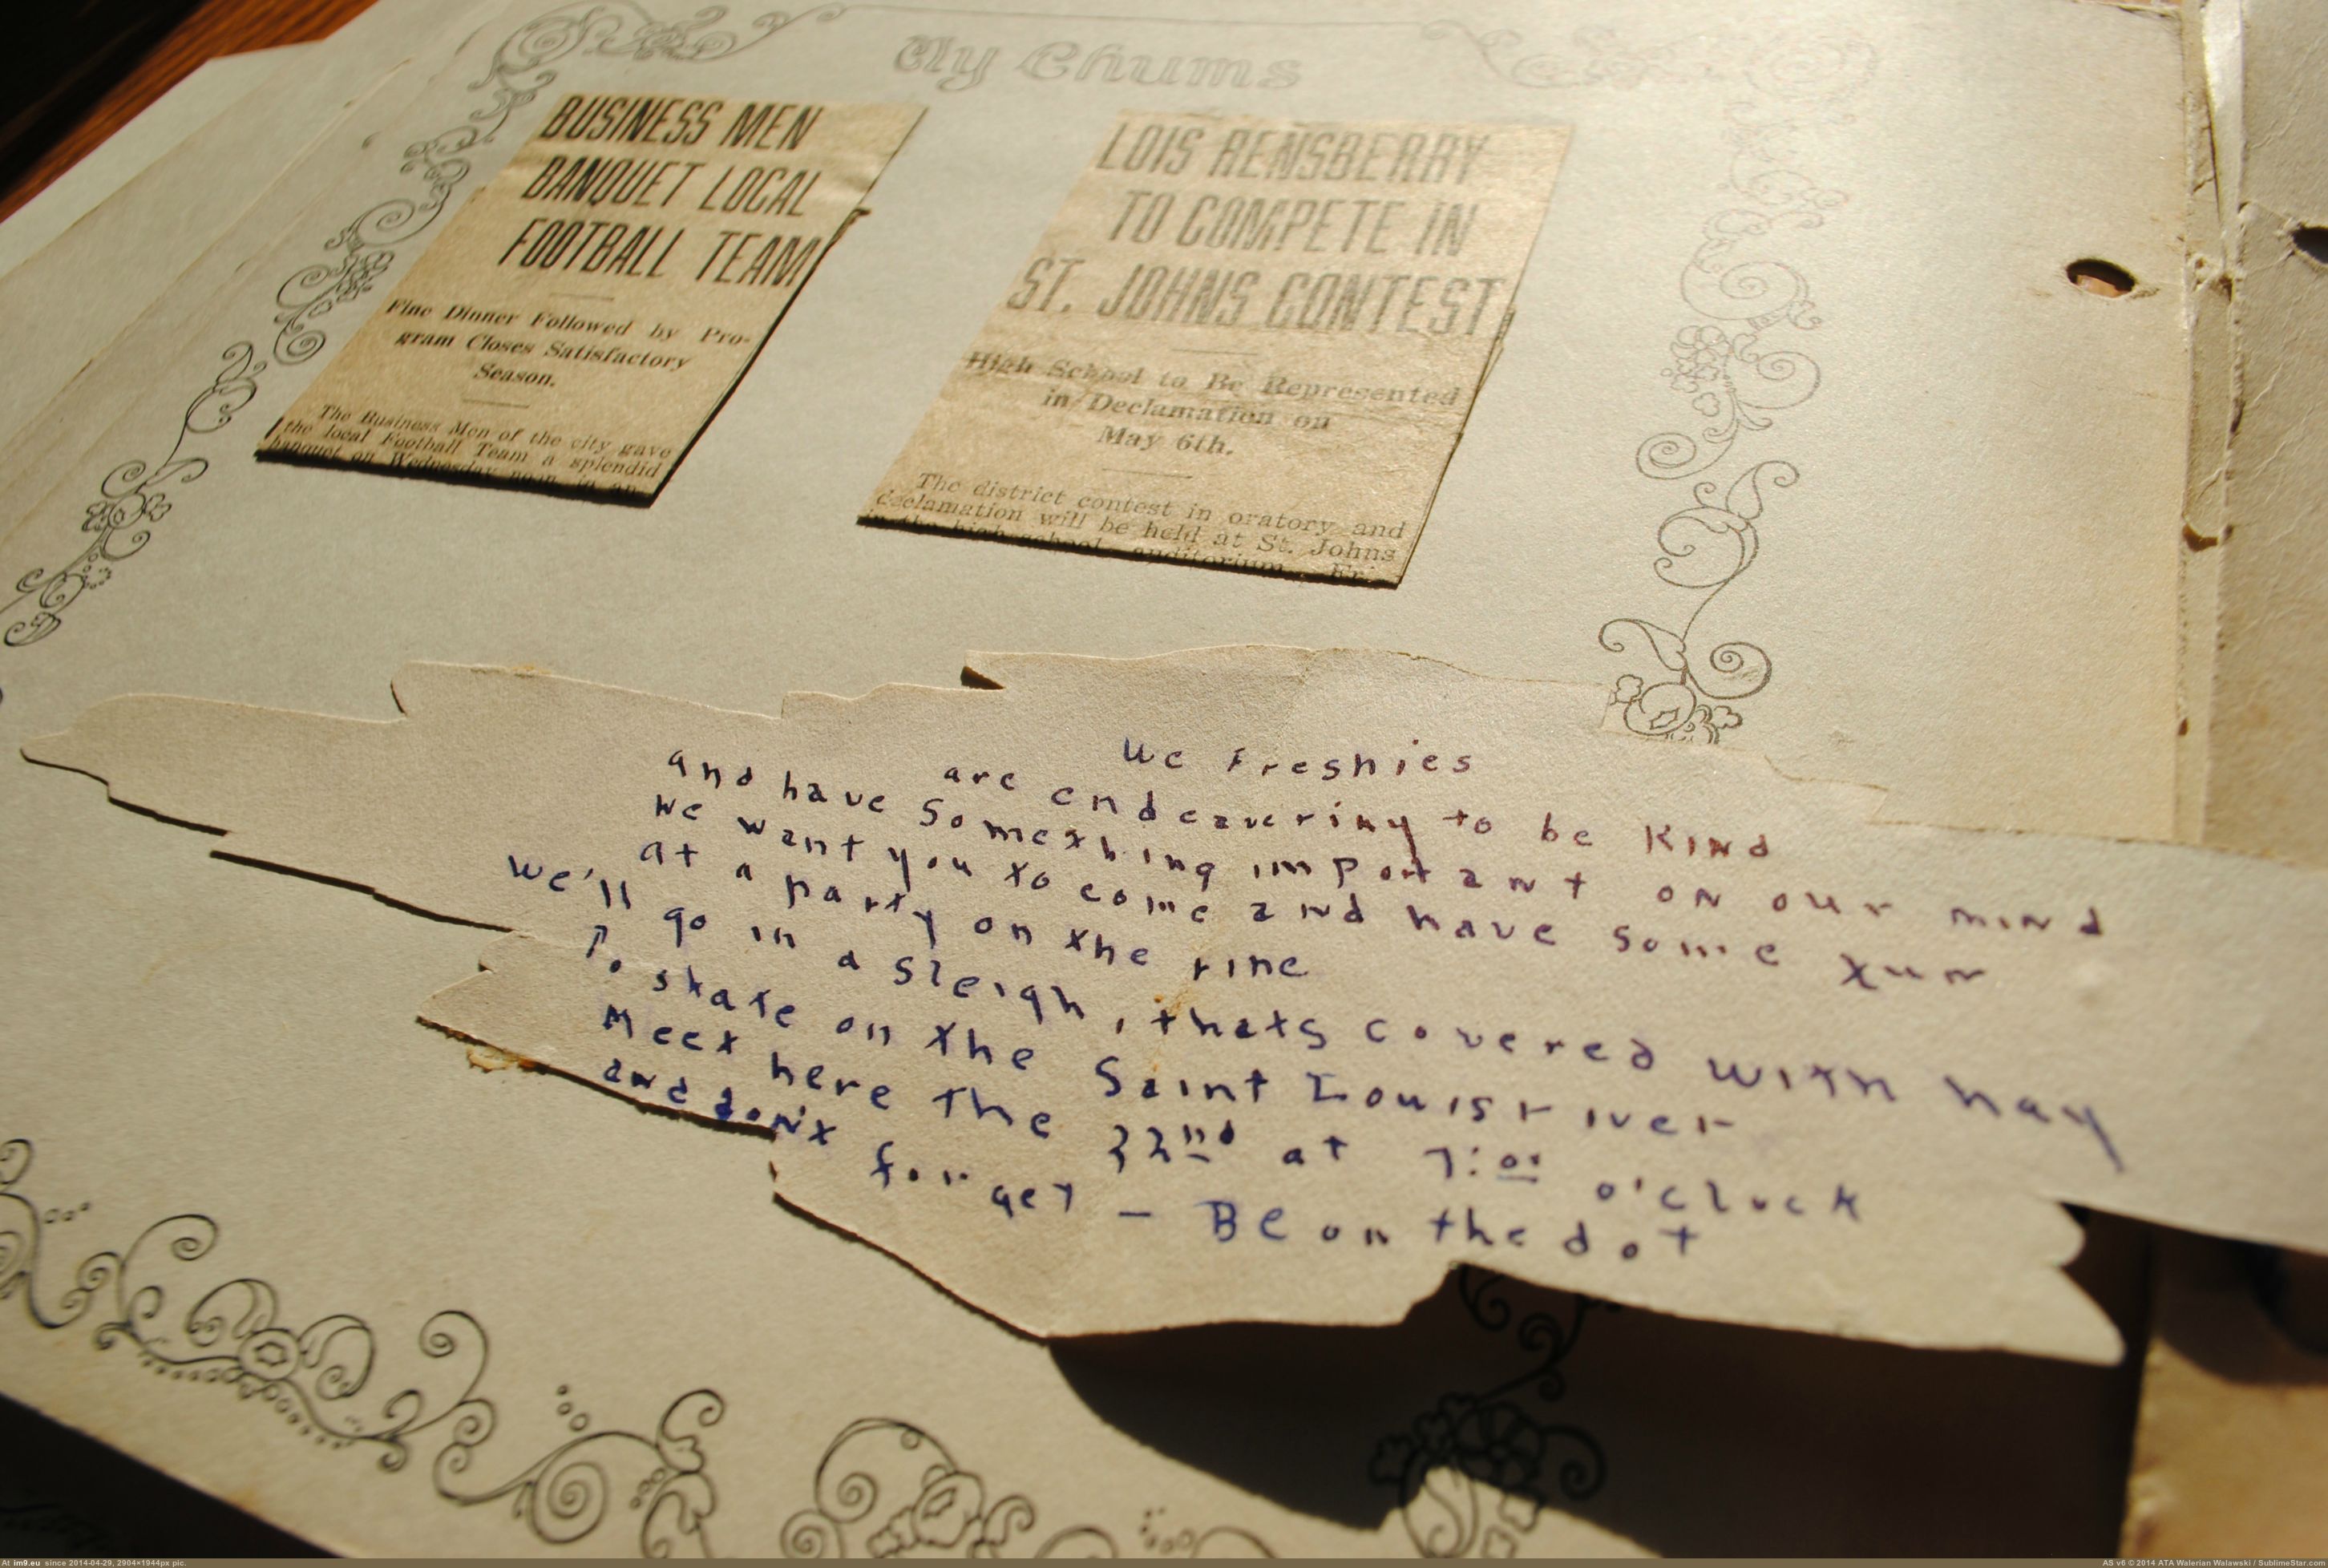 My Chums
BUSINESS MEN
BANQUET LOCAL
FOOTBALL TEAM
Fine Dinner Followed by Pro-
gram Closes Satisfactory
Season.
The Business Men of the city gave
the local Football Team a splendid
banquet on Wednesday noon in an
LOIS RENSBERRY
TO COMPETE IN
ST. JOHNS CONTEST
High School to Be Represented
in Declamation on
May 6th.
The district contest in oratory and
declamation will be held at St. Johns
in the high school auditorium Fri-
We Freshies
are endeavering to be kind
and have something important on our mind
We want you to come and have some fun
at a party on the rine
We'll go in a sleigh, thats covered with hay
To skate on the Saint Louis river
Meet here the 22nd at 7:00 o'clock
and don't forget - Be on the dot
At im9.eu since 2014-04-29, 2904×1944px pic.
AS v6 © 2014 ATA Walerian Walawski / SublimeStar.com